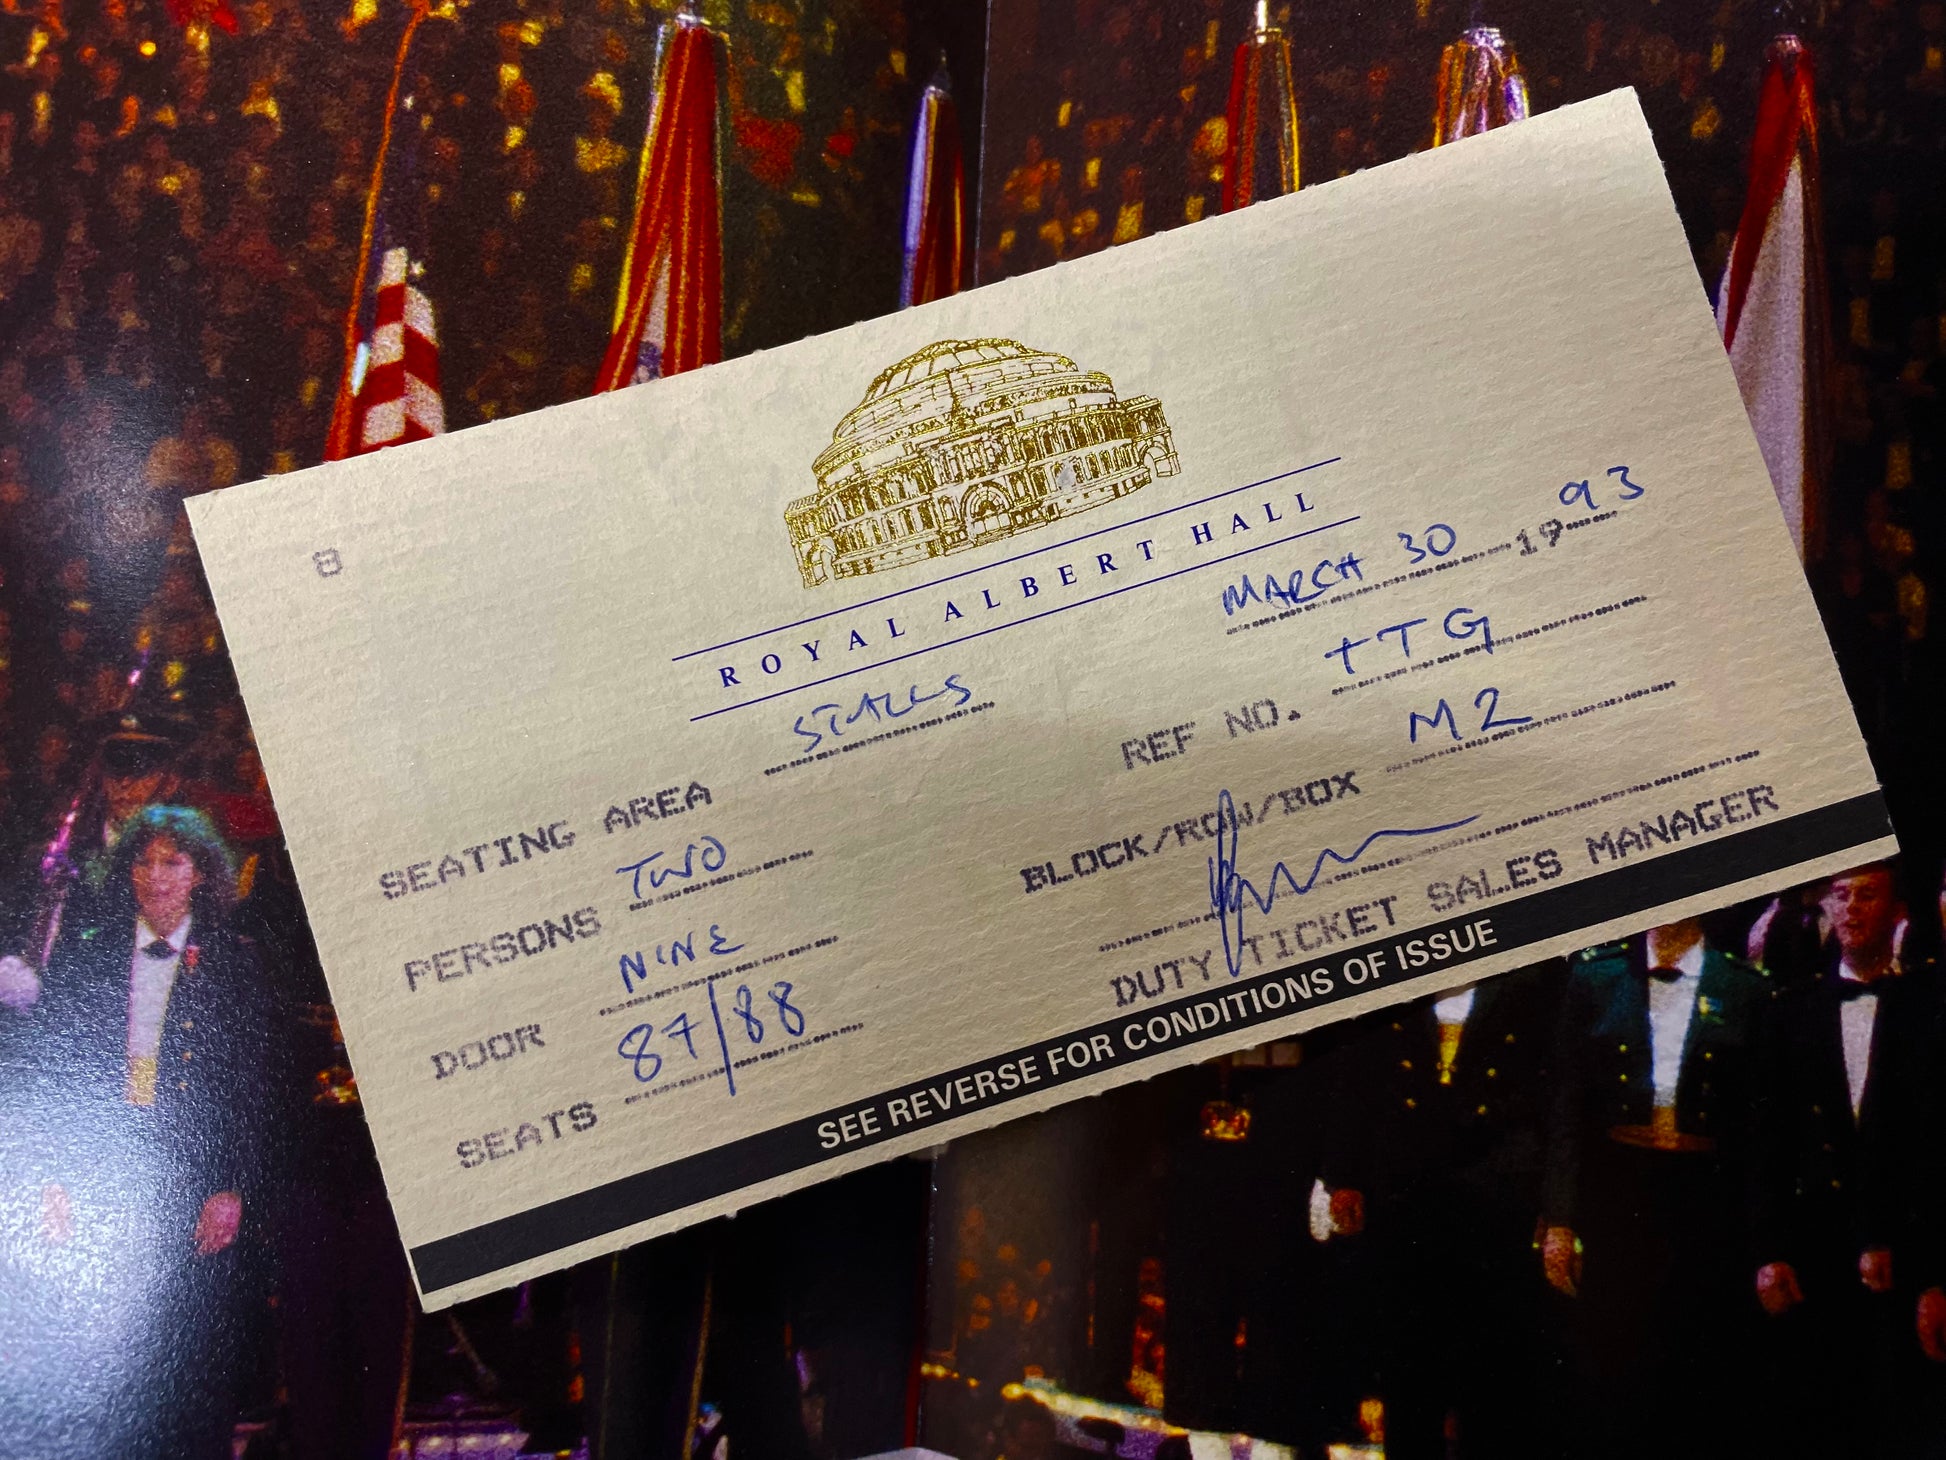 8
ROYAL ALBERT HALL
MARCH 30 1993
SEATING AREA STALLS
REF NO. TTG
PERSONS TWO
BLOCK/ROW/BOX M2
DOOR NINE
SEATS 87/88
DUTY TICKET SALES MANAGER
SEE REVERSE FOR CONDITIONS OF ISSUE